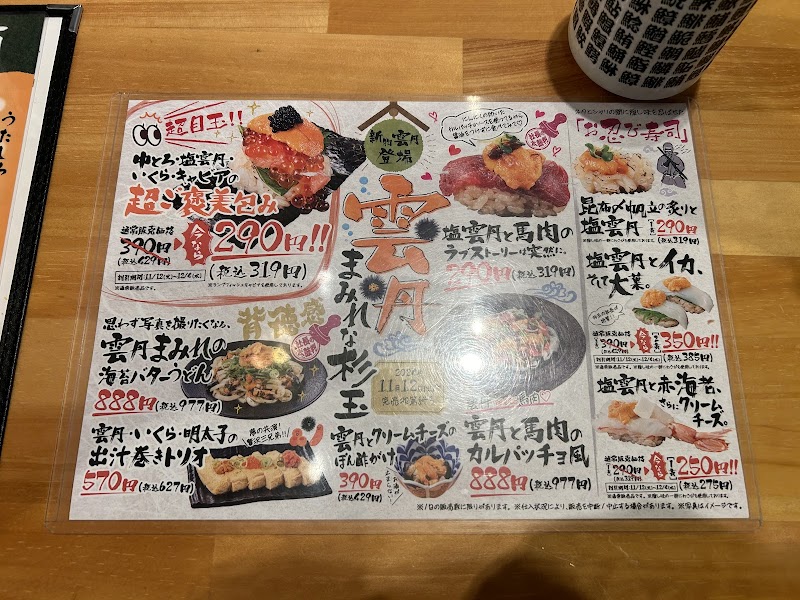 うたしろ
超目玉!!
中とろ・塩雲丹・
いくら・キャビアの
超ご褒美包み
通常販売価格
390円
(税込429円)
今なら
290円!!
(税込319円)
割引期間:11/12(水)~12/4(木)
※通常販売品です。
思わず写真を撮りたくなる、
背徳感
雲丹まみれの
海苔バターうどん
888円(税込977円)
雲丹・いくら・明太子の
出汁巻きトリオ
570円(税込627円)
新物雲丹
登場
雲丹
まみれな杉玉
11月12日
雲丹とクリームチーズの
ぽん酢がけ
390円
(税込429円)
塩雲丹と馬肉の
ラブストーリーは突然に。
290円(税込319円)
雲丹と馬肉の
カルパッチョ風
888円(税込977円)
「お忍び寿司」
昆布〆帆立の炙りと
塩雲丹
290円
(税込319円)
塩雲丹とイカ、
そして大葉。
通常販売価格
390円
(税込429円)
今なら
350円!!
(税込385円)
割引期間:11/12(水)~12/4(木)
塩雲丹と赤海老、
さらにクリーム
チーズ。
通常販売価格
290円
(税込319円)
今なら
250円!!
(税込275円)
割引期間:11/12(水)~12/4(木)
※1日の販売数に限りがあります。※仕入状況により、販売を中断/中止する場合があります。※写真はイメージです。